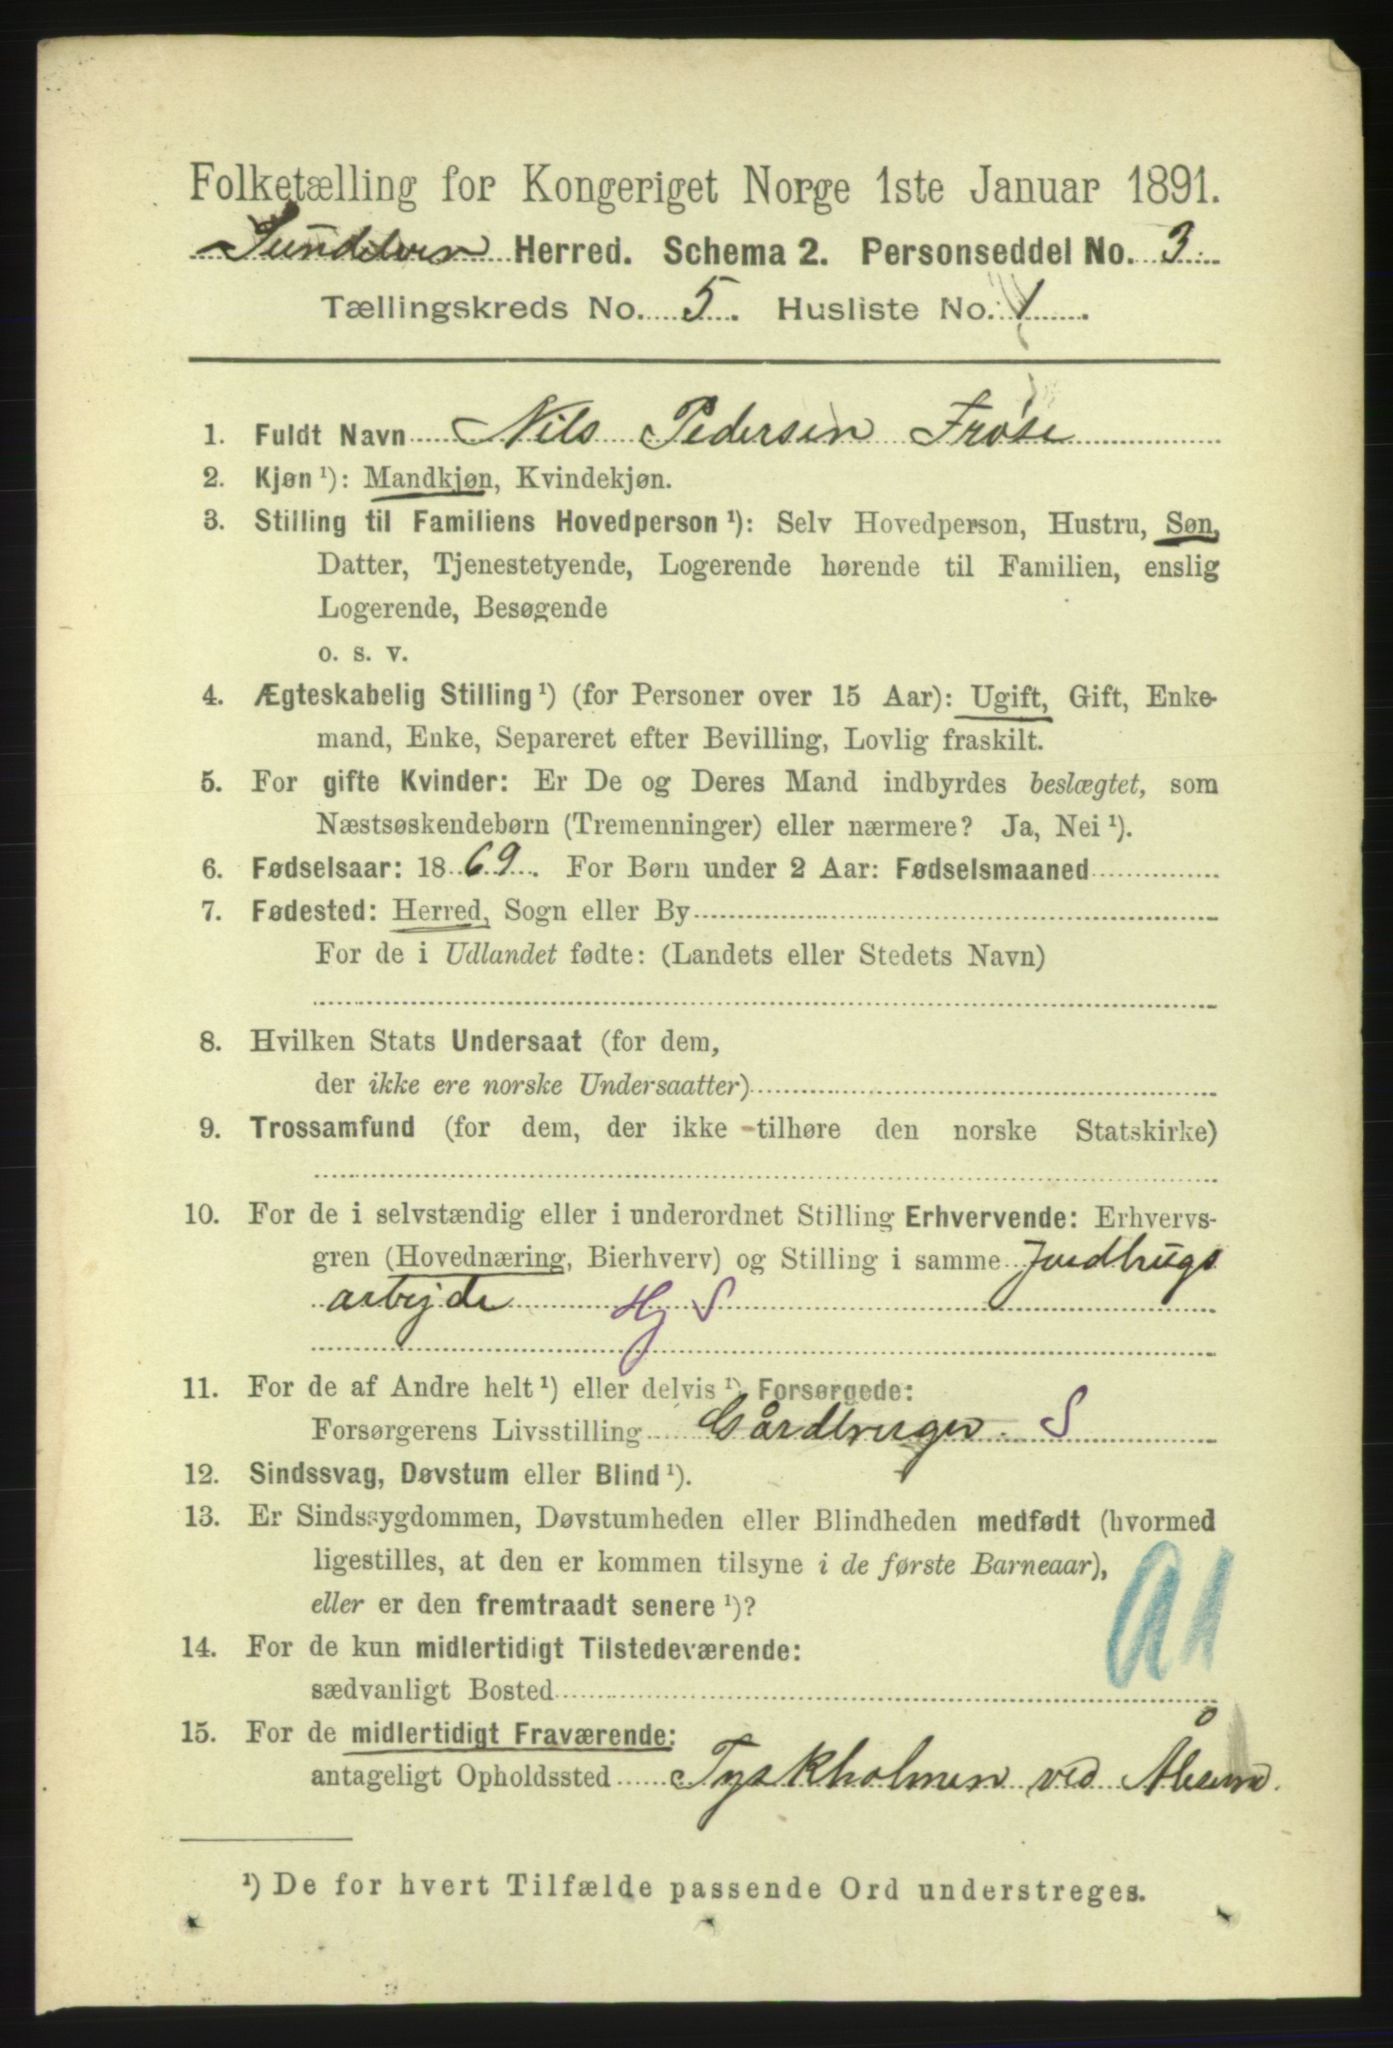 Folketælling for Kongeriget Norge 1ste Januar 1891.
Sunddven Herred. Schema 2. Personseddel No. 3
Tællingskreds No. 5. Husliste No. 1
1. Fuldt Navn Nils Pedersen Frøse
2. Kjøn ¹): Mandkjøn, Kvindekjøn.
3. Stilling til Familiens Hovedperson ¹): Selv Hovedperson, Hustru, Søn,
Datter, Tjenestetyende, Logerende hørende til Familien, enslig
Logerende, Besøgende
o. s. v.
4. Ægteskabelig Stilling ¹) (for Personer over 15 Aar): Ugift, Gift, Enke-
mand, Enke, Separeret efter Bevilling, Lovlig fraskilt.
5. For gifte Kvinder: Er De og Deres Mand indbyrdes beslægtet, som
Næstsøskendebørn (Tremenninger) eller nærmere? Ja, Nei ¹).
6. Fødselsaar: 1869. For Børn under 2 Aar: Fødselsmaaned
7. Fødested: Herred, Sogn eller By
For de i Udlandet fødte: (Landets eller Stedets Navn)
8. Hvilken Stats Undersaat (for dem,
der ikke ere norske Undersaatter)
9. Trossamfund (for dem, der ikke tilhøre den norske Statskirke)
10. For de i selvstændig eller i underordnet Stilling Erhvervende: Erhvervs-
gren (Hovednæring, Bierhverv) og Stilling i samme Jordbrugs
arbejde Hj S
11. For de af Andre helt ¹) eller delvis ¹) Forsørgede:
Forsørgerens Livsstilling Gårdbruger. S
12. Sindssvag, Døvstum eller Blind ¹).
13. Er Sindssygdommen, Døvstumheden eller Blindheden medfødt (hvormed
ligestilles, at den er kommen tilsyne i de første Barneaar),
eller er den fremtraadt senere ¹)?
14. For de kun midlertidigt Tilstedeværende:
sædvanligt Bosted
15. For de midlertidigt Fraværende:
antageligt Opholdssted Tyskholmen ved Ålesund.
¹) De for hvert Tilfælde passende Ord understreges.